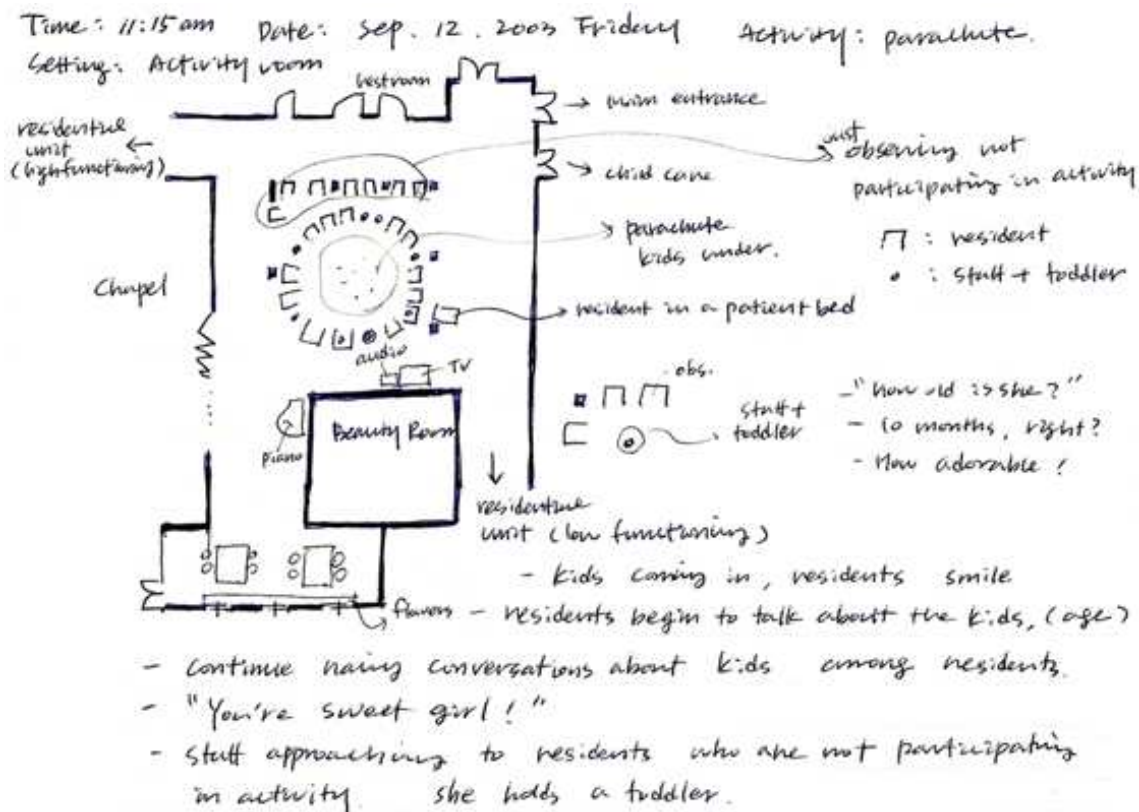 Time: 11:15 am Date: Sep. 12. 2003 Friday Activity: parachute.
Setting: Activity room
restroom
main entrance
residential
unit
(high functioning)
child care
just
observing not
participating in activity
parachute
kids under.
: resident
: staff + toddler
Chapel
resident in a patient bed
audio
TV
obs.
Beauty Room
piano
staff +
toddler
- "How old is she?"
- 10 months, right?
- How adorable!
residential
unit (low functioning)
- kids coming in, residents smile
flowers - residents begin to talk about the kids, (age)
- continue having conversations about kids among residents.
- "You're sweet girl!"
- staff approaching to residents who are not participating
in activity. she holds a toddler.